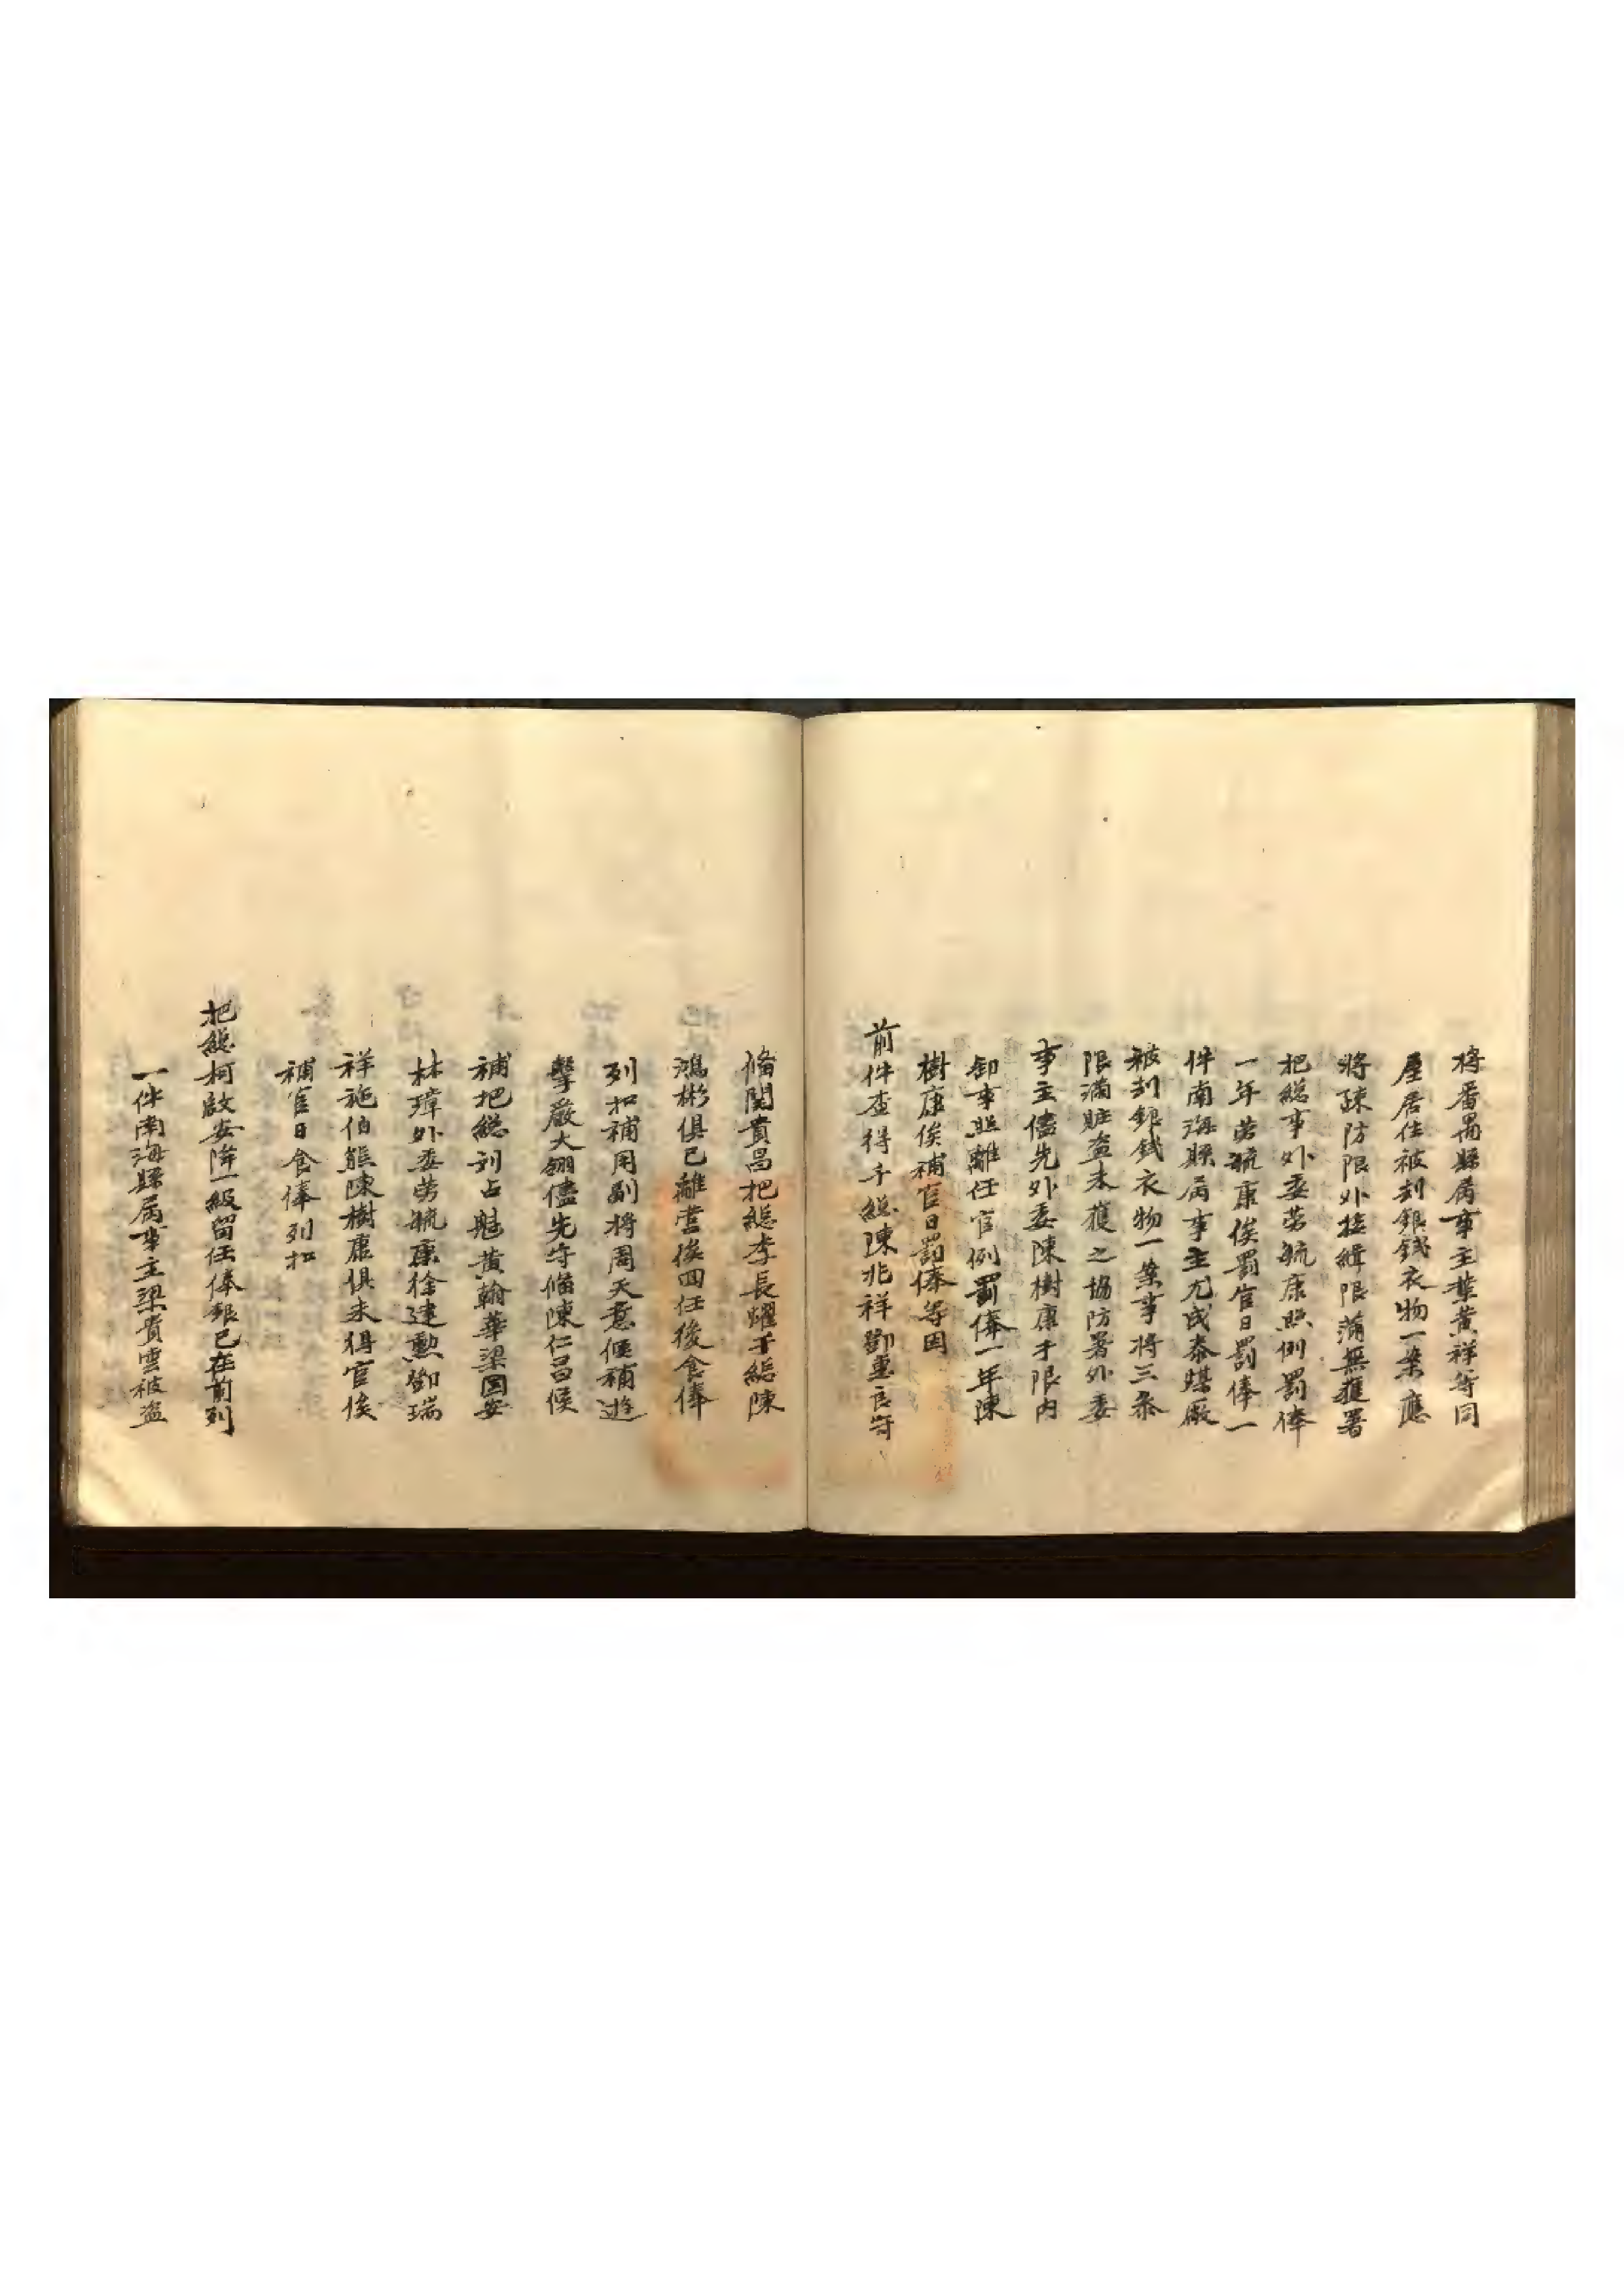 将番禺縣属事主葉黄祥等同
屋居住被刦銀錢衣物一案應
將疎防限外接緝限滿無獲署
把総事外委劳毓康照例罰俸
一年劳毓康俟罰官日罰俸一
件南海縣属事主尤成泰煤廠
被刦銀錢衣物一案事将三叅
限滿賍盗未獲之協防署外委
事主儘先外委陳樹康才限内
卸事照離任官例罰俸一年陳
樹康俟補官日罰俸等因
前件查得千総陳兆祥鄧惠良守
俻関貴昌把総李長躍千総陳
鴻彬俱已離営俟回任後食俸
列扣補用副将周天意候補遊
擊嚴大翎儘先守俻陳仁昌候
補把総刘占魁黄翰華梁国安
林瑋外委劳毓康徐建勲鄧瑞
祥施伯熊陳樹康俱未得官俟
補官日食俸列扣
把総柯啟安降一級留任俸銀已在前列
一件南海縣属事主梁貴雲被盗